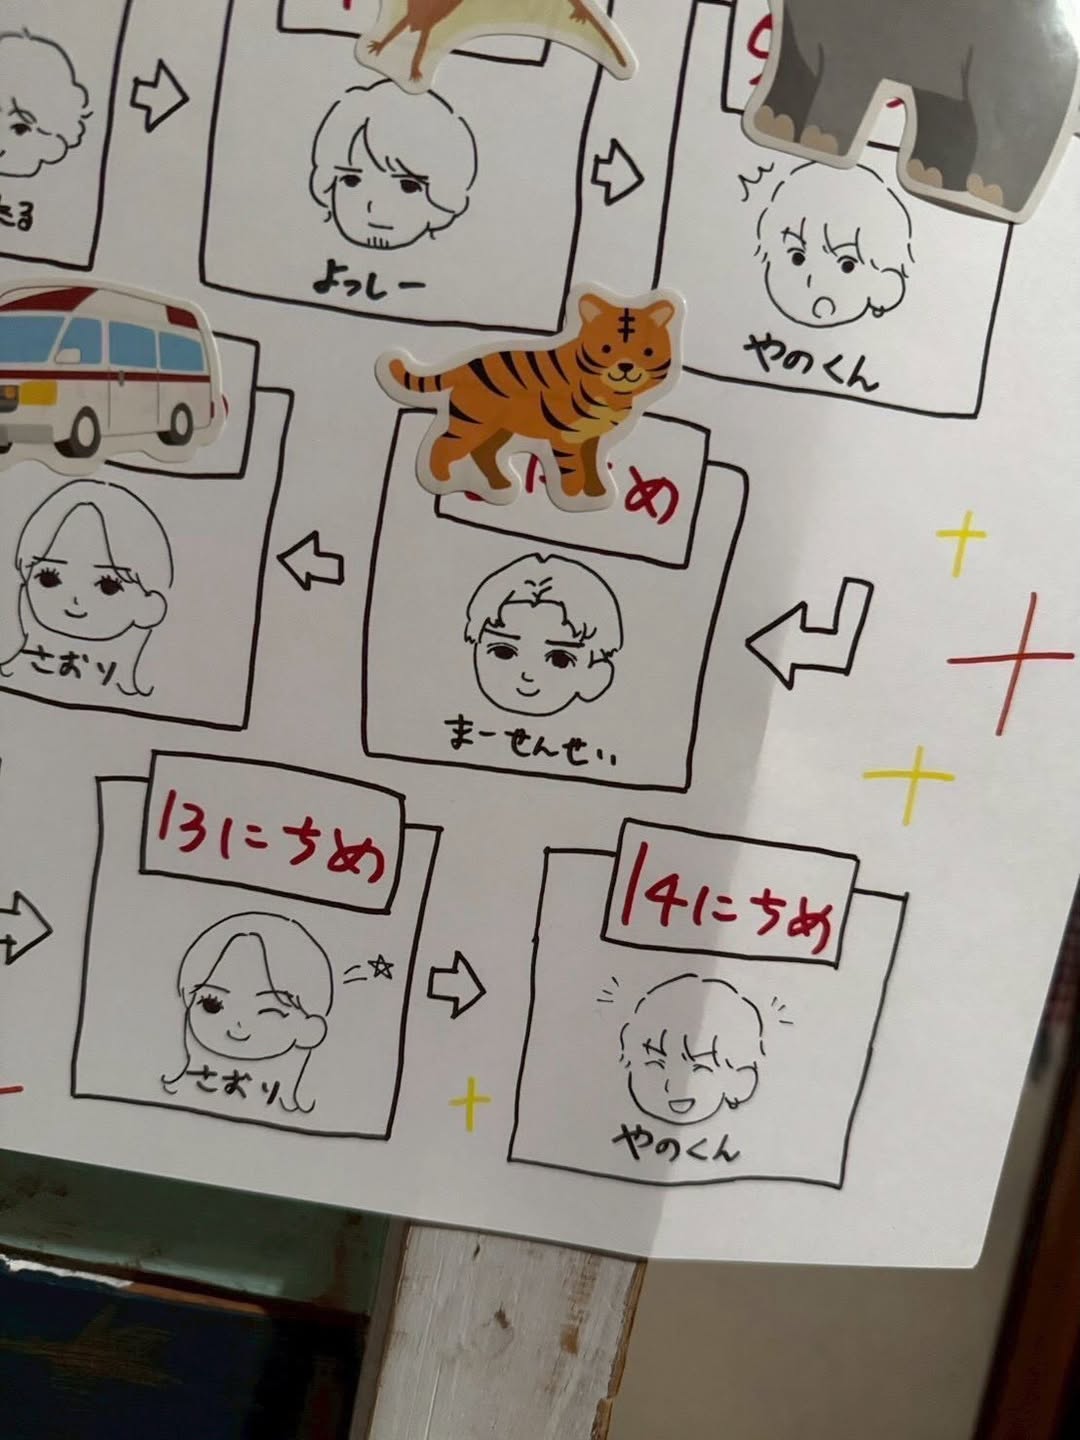 よっしー
やのくん
さおり
まーせんせい
13にちめ
14にちめ
さおり
やのくん